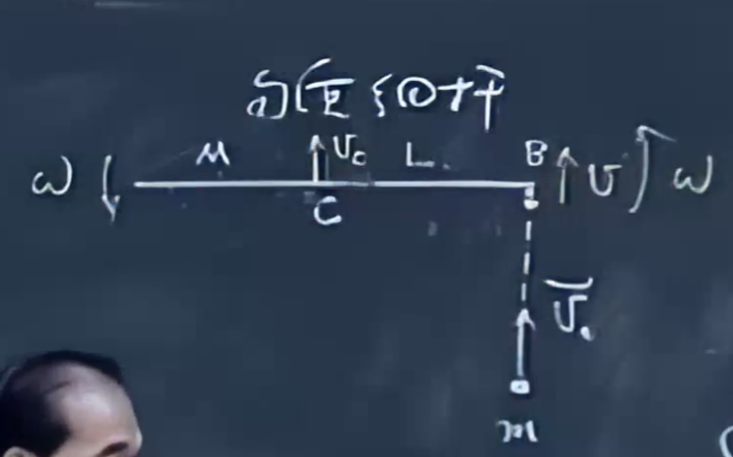 匀质细杆
ω M v_c L B v ω
C
v⃗₀
m